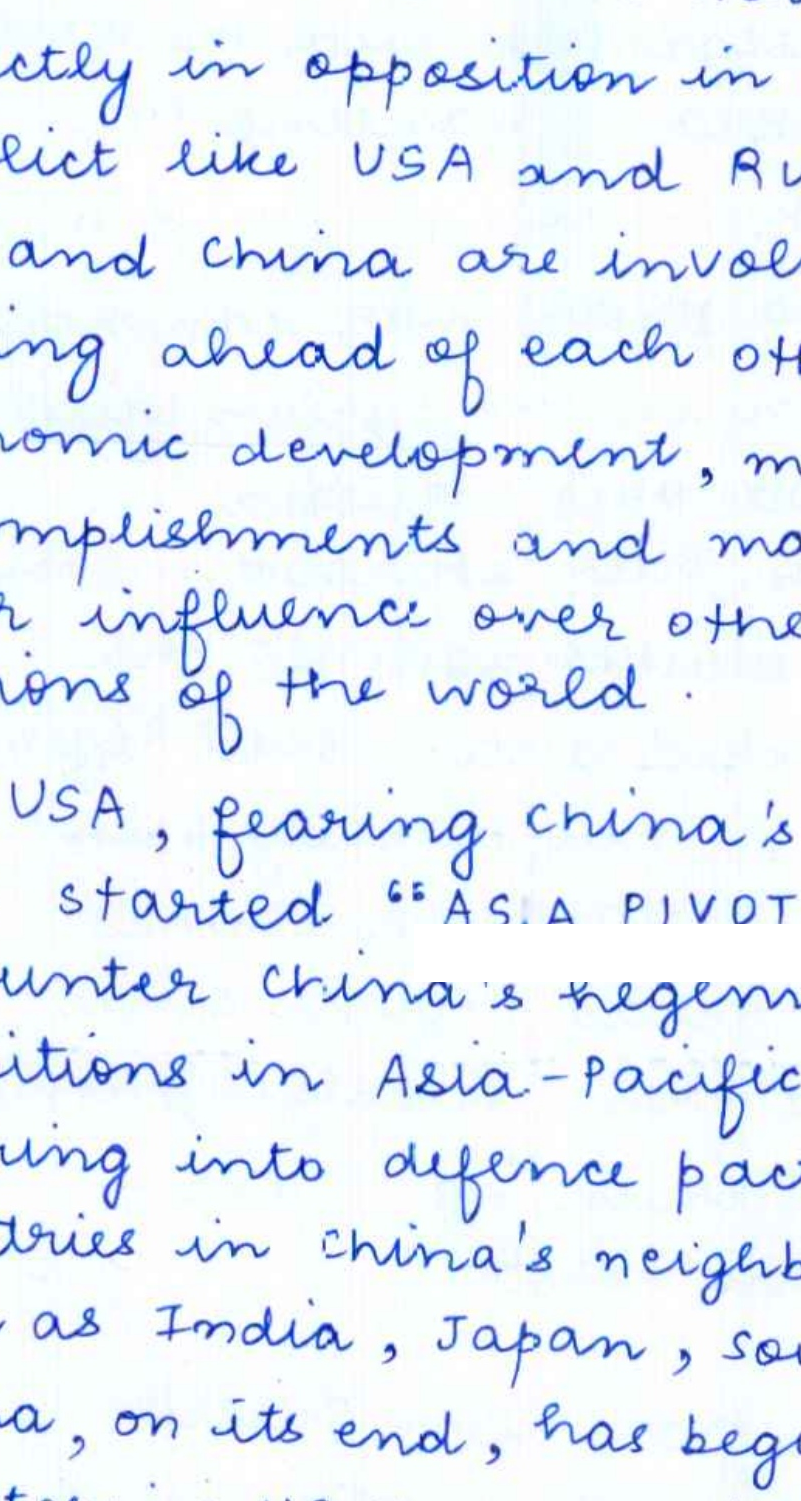 ctly in opposition in
lict like USA and Ru
and China are invol
ing ahead of each oth
nomic development, m
mplishments and ma
r influence over othe
ions of the world.
USA, fearing China's
started "ASIA PIVOT
unter China's hegem
itions in Asia-Pacific
ring into defence pac
tries in China's neighb
as India, Japan, sou
a, on its end, has beg